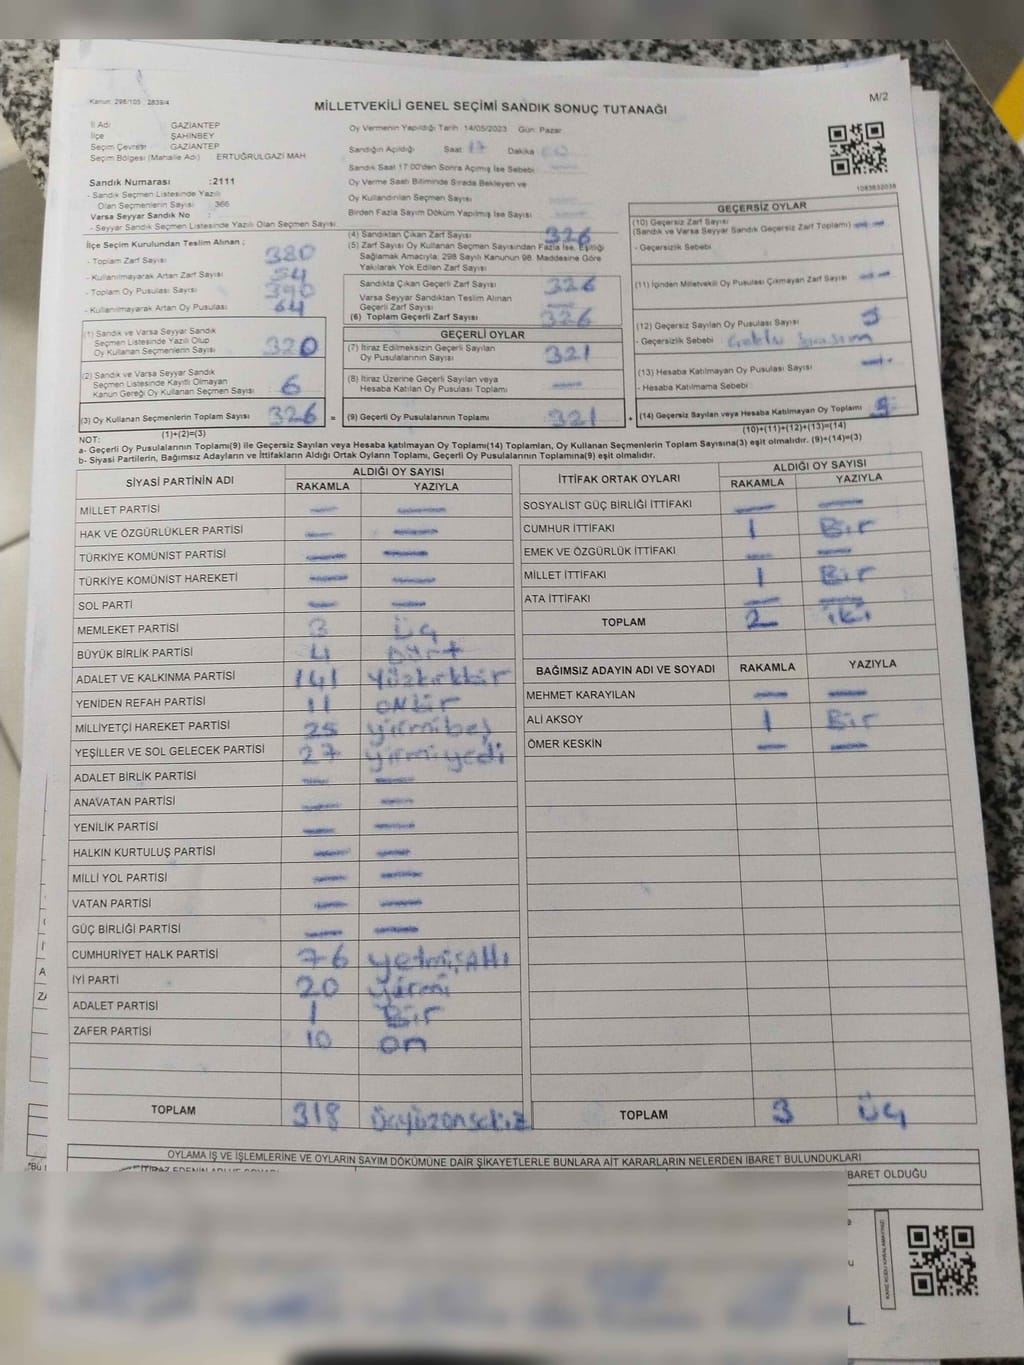 Kanun: 298/105 2839/4
M/2
MİLLETVEKİLİ GENEL SEÇİMİ SANDIK SONUÇ TUTANAĞI
İl Adı GAZİANTEP
İlçe ŞAHİNBEY
Seçim Çevresi GAZİANTEP
Seçim Bölgesi (Mahalle Adı) ERTUĞRULGAZİ MAH
Sandık Numarası :2111
- Sandık Seçmen Listesinde Yazılı
Olan Seçmenlerin Sayısı 366
Varsa Seyyar Sandık No :
- Seyyar Sandık Seçmen Listesinde Yazılı Olan Seçmen Sayısı
Oy Vermenin Yapıldığı Tarih :14/05/2023 Gün: Pazar
Sandığın Açıldığı Saat 17 Dakika
Sandık Saat 17:00'den Sonra Açılmış İse Sebebi
Oy Verme Saati Bitiminde Sırada Bekleyen ve
Oy Kullandırılan Seçmen Sayısı
Birden Fazla Sayım Döküm Yapılmış İse Sayısı
1083832038
İlçe Seçim Kurulundan Teslim Alınan ;
- Toplam Zarf Sayısı 380
- Kullanılmayarak Artan Zarf Sayısı 54
- Toplam Oy Pusulası Sayısı 390
- Kullanılmayarak Artan Oy Pusulası 64
(1) Sandık ve Varsa Seyyar Sandık
Seçmen Listesinde Yazılı Olup
Oy Kullanan Seçmenlerin Sayısı 320
(2) Sandık ve Varsa Seyyar Sandık
Seçmen Listesinde Kayıtlı Olmayan
Kanun Gereği Oy Kullanan Seçmen Sayısı 6
(3) Oy Kullanan Seçmenlerin Toplam Sayısı 326 =
(1)+(2)=(3)
(4) Sandıktan Çıkan Zarf Sayısı 326
(5) Zarf Sayısı Oy Kullanan Seçmen Sayısından Fazla İse, Eşitliği
Sağlamak Amacıyla, 298 Sayılı Kanunun 98. Maddesine Göre
Yakılarak Yok Edilen Zarf Sayısı
Sandıkta Çıkan Geçerli Zarf Sayısı 326
Varsa Seyyar Sandıktan Teslim Alınan
Geçerli Zarf Sayısı
(6) Toplam Geçerli Zarf Sayısı 326
GEÇERLİ OYLAR
(7) İtiraz Edilmeksizin Geçerli Sayılan
Oy Pusulalarının Sayısı 321
(8) İtiraz Üzerine Geçerli Sayılan veya
Hesaba Katılan Oy Pusulası Toplamı
(9) Geçerli Oy Pusulalarının Toplamı 321 +
GEÇERSİZ OYLAR
(10) Geçersiz Zarf Sayısı
(Sandık ve Varsa Seyyar Sandık Geçersiz Zarf Toplamı)
- Geçersizlik Sebebi
(11) İçinden Milletvekili Oy Pusulası Çıkmayan Zarf Sayısı
(12) Geçersiz Sayılan Oy Pusulası Sayısı 5
- Geçersizlik Sebebi
(13) Hesaba Katılmayan Oy Pusulası Sayısı
- Hesaba Katılmama Sebebi
(14) Geçersiz Sayılan veya Hesaba Katılmayan Oy Toplamı 5
(10)+(11)+(12)+(13)=(14)
NOT:
a- Geçerli Oy Pusulalarının Toplamı(9) ile Geçersiz Sayılan veya Hesaba katılmayan Oy Toplamı(14) Toplamları, Oy Kullanan Seçmenlerin Toplam Sayısına(3) eşit olmalıdır. (9)+(14)=(3)
b- Siyasi Partilerin, Bağımsız Adayların ve İttifakların Aldığı Ortak Oyların Toplamı, Geçerli Oy Pusulalarının Toplamına(9) eşit olmalıdır.
SİYASİ PARTİNİN ADI ALDIĞI OY SAYISI
RAKAMLA YAZIYLA
MİLLET PARTİSİ
HAK VE ÖZGÜRLÜKLER PARTİSİ
TÜRKİYE KOMÜNİST PARTİSİ
TÜRKİYE KOMÜNİST HAREKETİ
SOL PARTİ
MEMLEKET PARTİSİ 3 üç
BÜYÜK BİRLİK PARTİSİ 4 Dört
ADALET VE KALKINMA PARTİSİ 141 yüzkırkbir
YENİDEN REFAH PARTİSİ 11 onbir
MİLLİYETÇİ HAREKET PARTİSİ 25 yirmibeş
YEŞİLLER VE SOL GELECEK PARTİSİ 27 yirmiyedi
ADALET BİRLİK PARTİSİ
ANAVATAN PARTİSİ
YENİLİK PARTİSİ
HALKIN KURTULUŞ PARTİSİ
MİLLİ YOL PARTİSİ
VATAN PARTİSİ
GÜÇ BİRLİĞİ PARTİSİ
CUMHURİYET HALK PARTİSİ 76 yetmişaltı
İYİ PARTİ 20 yirmi
ADALET PARTİSİ 1 Bir
ZAFER PARTİSİ 10 on
TOPLAM 318 üçyüzonsekiz
İTTİFAK ORTAK OYLARI ALDIĞI OY SAYISI
RAKAMLA YAZIYLA
SOSYALİST GÜÇ BİRLİĞİ İTTİFAKI
CUMHUR İTTİFAKI 1 Bir
EMEK VE ÖZGÜRLÜK İTTİFAKI
MİLLET İTTİFAKI 1 Bir
ATA İTTİFAKI
TOPLAM 2 iki
BAĞIMSIZ ADAYIN ADI VE SOYADI RAKAMLA YAZIYLA
MEHMET KARAYILAN
ALİ AKSOY 1 Bir
ÖMER KESKİN
TOPLAM 3 üç
OYLAMA İŞ VE İŞLEMLERİNE VE OYLARIN SAYIM DÖKÜMÜNE DAİR ŞİKAYETLERLE BUNLARA AİT KARARLARIN NELERDEN İBARET BULUNDUKLARI
BARET OLDUĞU